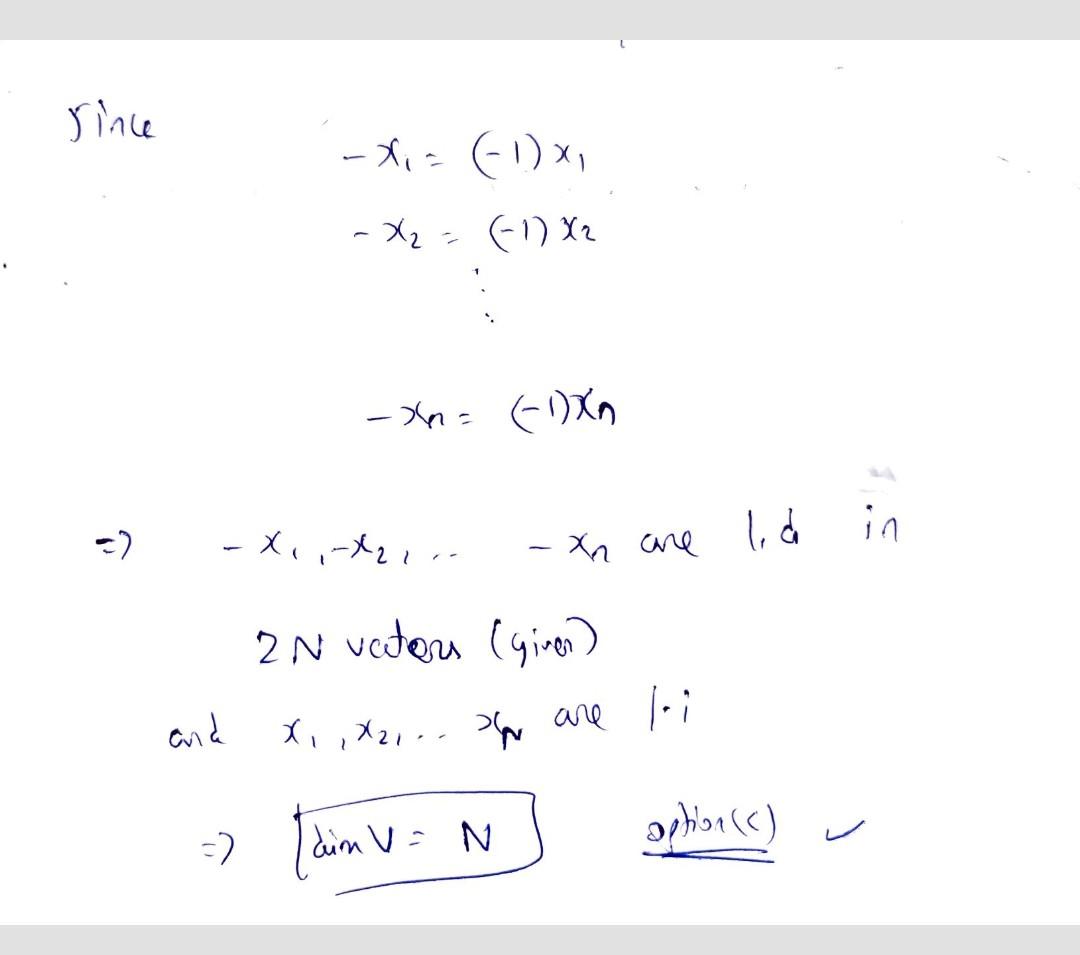 Since
-x₁ = (-1) x₁
-x₂ = (-1) x₂
⋮
-xn = (-1)xn
=> -x₁, -x₂, .. -xn are l.d in
2N vectors (given)
and x₁, x₂, .. xN are l.i
=> dim V = N option (c) ✓